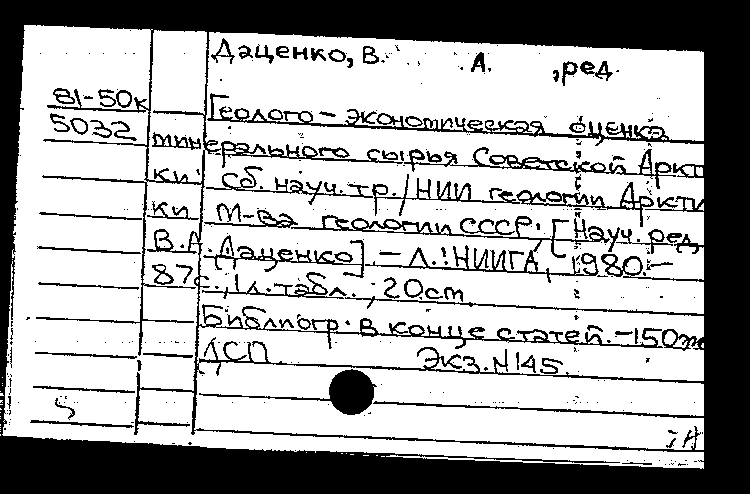 Даценко, В. А. ,ред.
81-50к Геолого-экономическая оценка
5032 минерального сырья Советской Аркти
ки: Сб. науч. тр./НИИ геологии Аркти
ки М-ва геологии СССР; [Науч. ред.
В.А. Даценко]. – Л.: НИИГА, 1980.–
87с., 1л. табл.; 20см.
Библиогр. в конце статей. –150эк
ДСП Экз. N145.